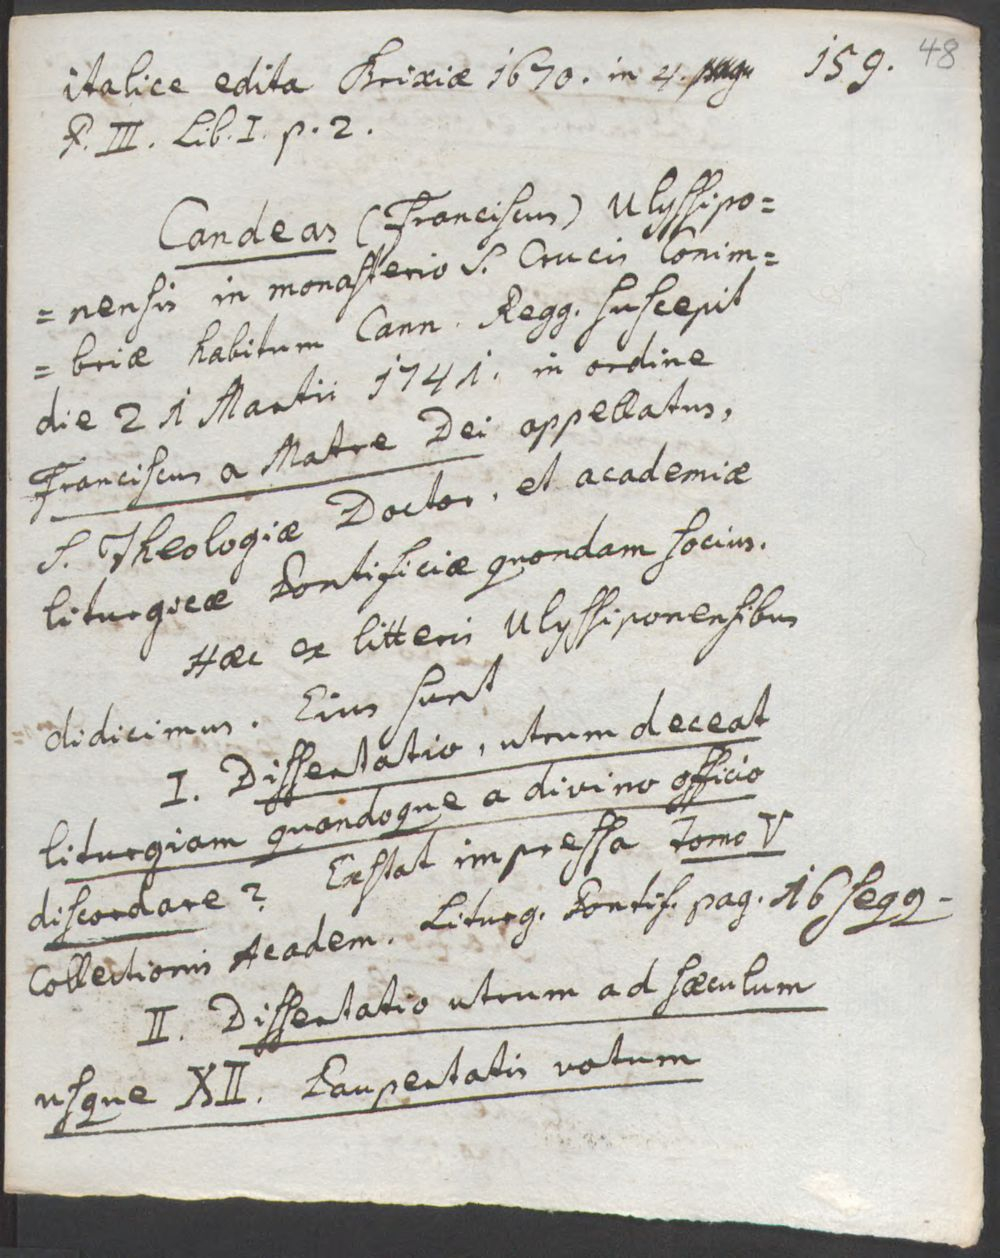 italice edita Brixiæ 1670. in 4. pag. 159. 48
P. III. Lib. I. p. 2.
Candeas (Franciscus) Ulyssipo=
= nensis in monasterio S. Crucis Conim=
= briæ habitum Cann. Regg. suscepit
die 21 Martii 1741. in ordine
Franciscus a Matre Dei appellatus,
S. Theologiæ Doctor, et academiæ
liturgicæ Pontificiæ quondam socius.
Hæc ex litteris Ulyssiponensibus
didicimus. Eius sunt
I. Dissertatio, utrum deceat
liturgiam quandoque a divino officio
discordare? Exstat impressa Tomo V
Collectionis Academ. Liturg. Pontif. pag. 16 seqq.
II. Dissertatio utrum ad sæculum
usque XII. Paupertatis votum